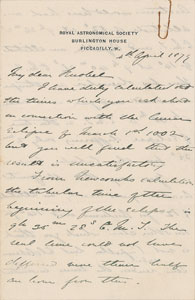 ROYAL ASTRONOMICAL SOCIETY
BURLINGTON HOUSE
PICCADILLY, W.
April 1879
My dear
I have duly calculated
the times which you ask about
in connection with the Lunar
Eclipse of March 1st 1002
but you will find that the
result is unsatisfactory.
From Newcomb's calculation
the tabular time of the
beginning of the eclipse is
9h 35m 28s G. M. T. The
real time could not have
differed more than half
an hour from this.